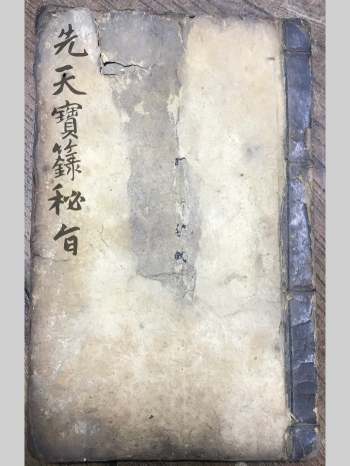 先天寶籙秘旨